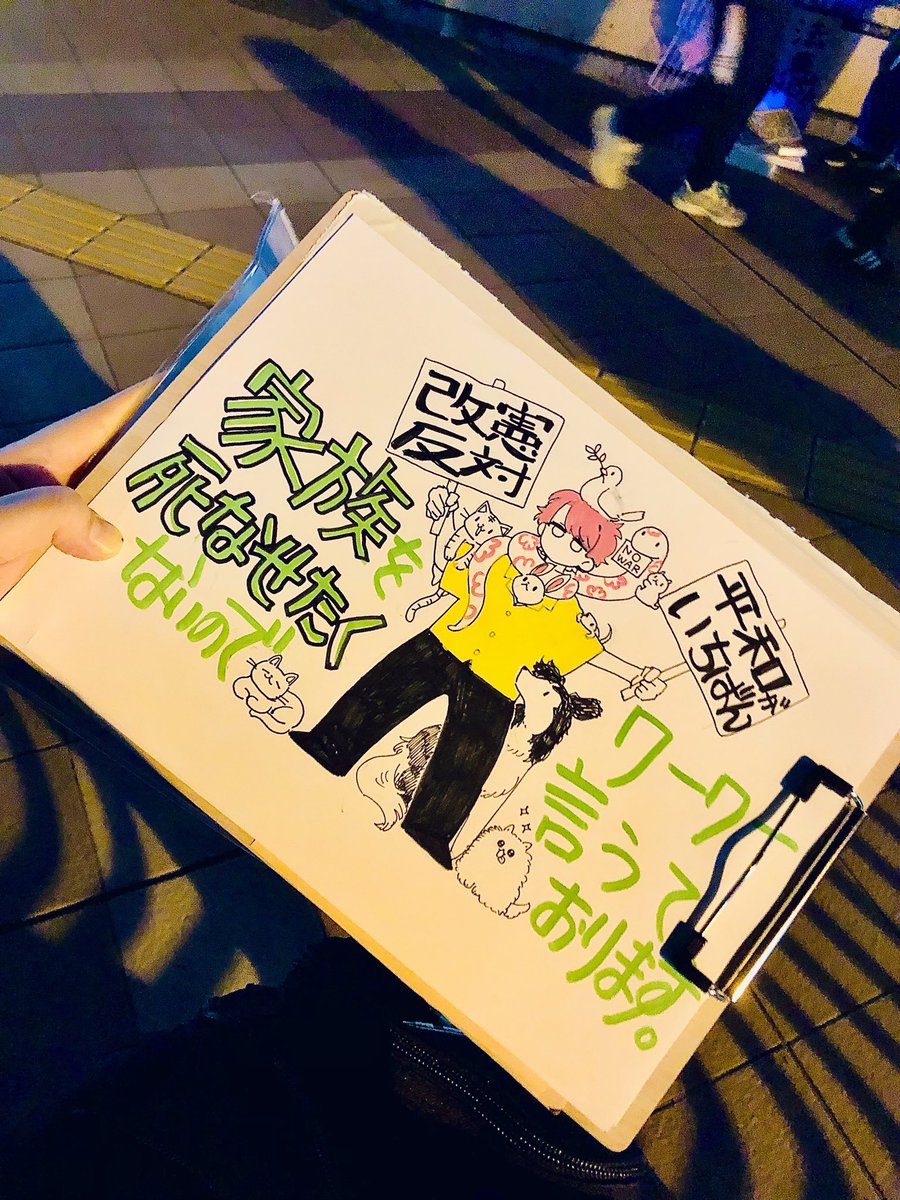 家族を
死なせたく
ないので
改憲
反対
NO
WAR
平和が
いちばん
ワーワー
言うて
おります。